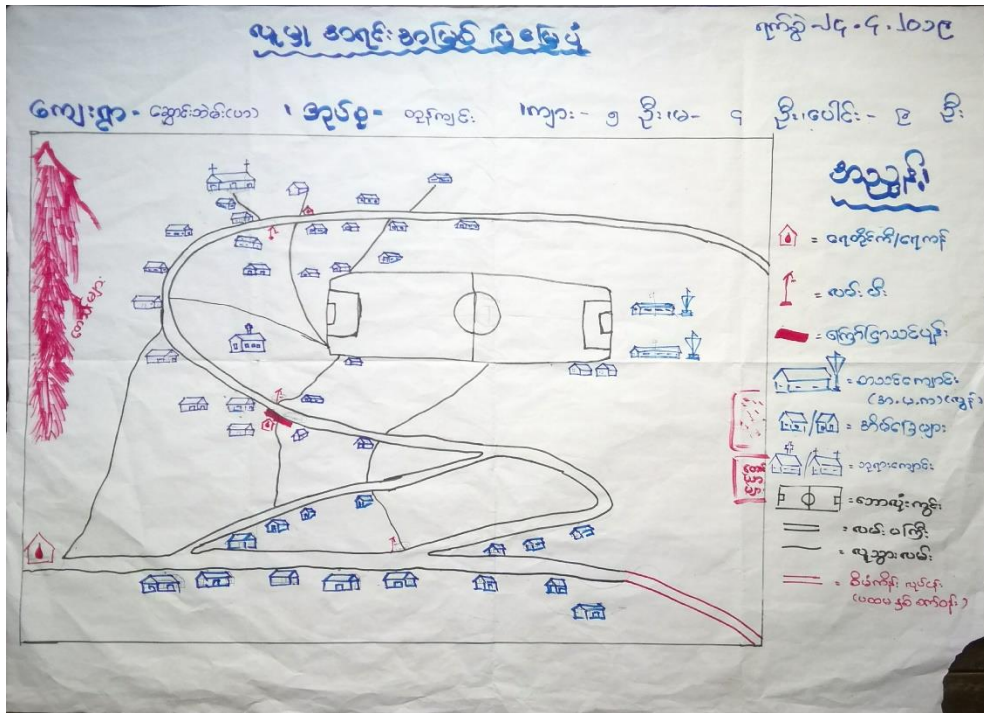 လူမှု အရင်းအမြစ် ပြမြေပုံ
ရက်စွဲ - ၂၄.၄.၂၀၁၉
ကျေးရွာ - ဆွောင်းဘဲမ်း(ဟာ) ၊ အုပ်စု - တွန်ကျင်း ၊ကျား - ၅ ဦး ၊မ - ၄ ဦး ၊ပေါင်း - ၉ ဦး
အညွှန်း
= ရေတိုင်ကီ/ရေကန်
= လမ်းမီး
= ကြော်ငြာသင်ပုန်း
= စာသင်ကျောင်း
= အိမ်ခြေများ
= ဘုရားကျောင်း
= ဘောလုံးကွင်း
= လမ်းမကြီး
= လူသွားလမ်း
= စီမံကိန်း လုပ်ငန်း
(ပထမနှစ်